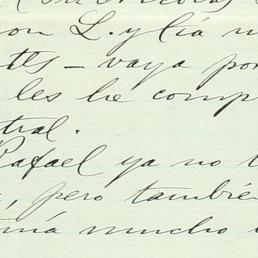 on L. y tía
– vaya por
les he comp
tral.
Rafael ya no
, pero también
mucho